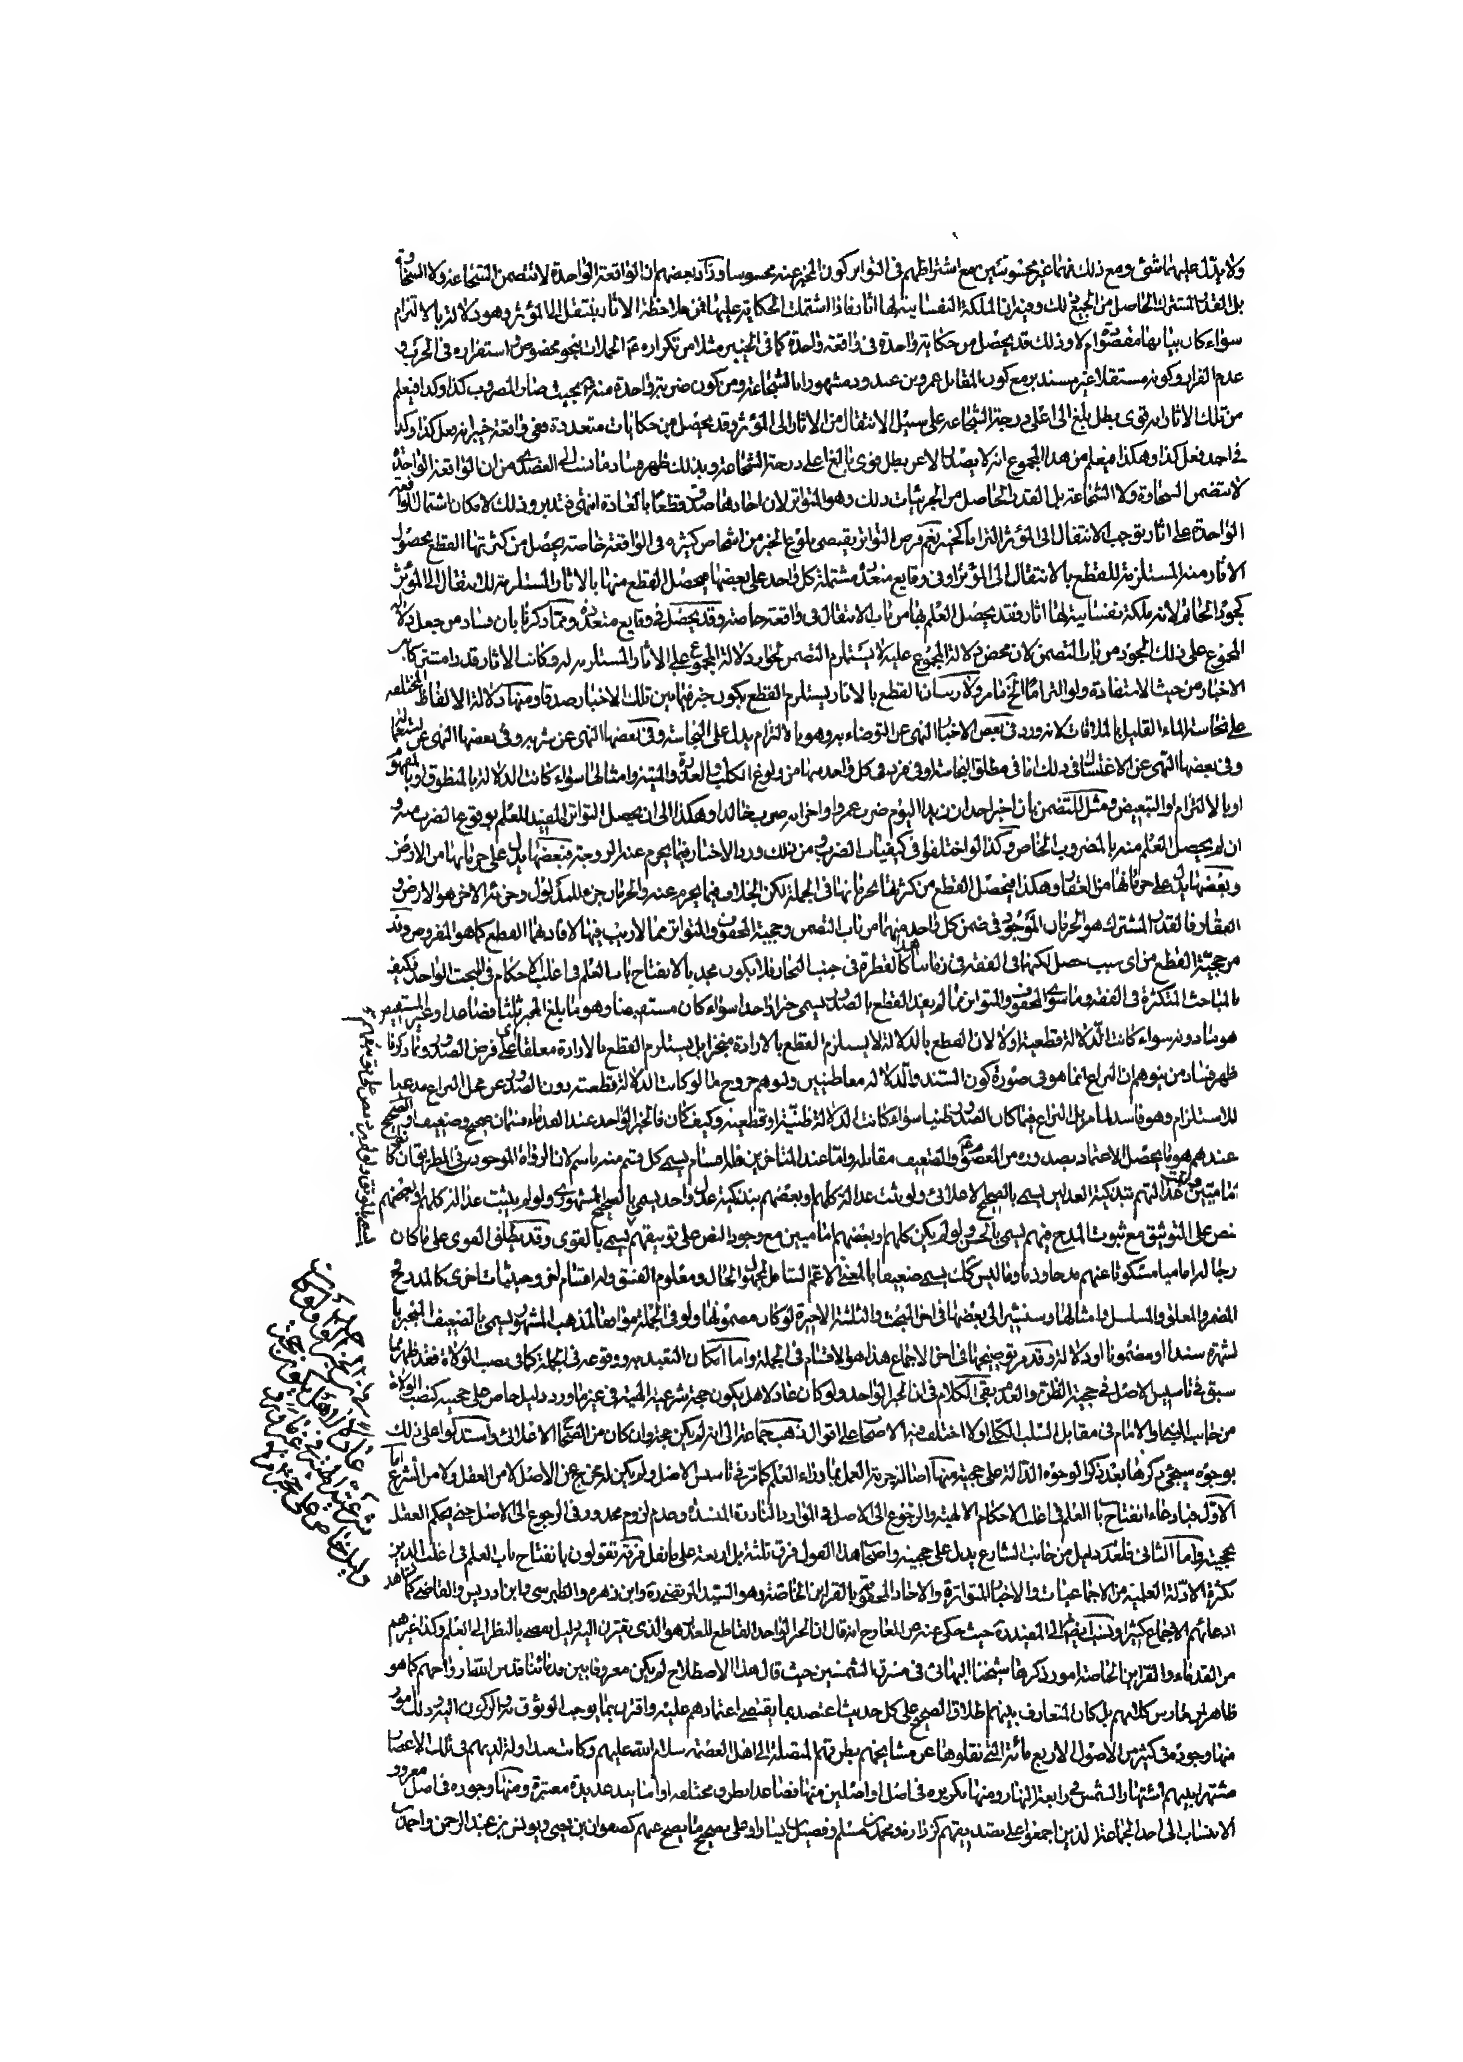 ولا يدل عليهما شئ ومع ذلك فهما غير محسوسين مع اشتراطهم فى التواتر كون المخبر عنه محسوسا وزاد بعضهم ان الواقعة الواحدة لا تتضمن الشجاعة ولا السخاوة
بل القدر المشترك الحاصل من الجميع ذلك وفيه ان الملكة النفسانية لها اثار فاذا اشتملت الحكاية عليها فمن ملاحظة الاثار ينتقل الى المؤثر وهو دلالة بالالتزام
سواء كان بيانها مقصودا ام لا وذلك قد يحصل من حكاية واحدة فى واقعة واحدة كما فى الخيبر مثلا من تكراره عم الحملات بنحو مخصوص واستقراره فى الحرب و
عدم الفرار وكونه مستقلا غير مستند بر مع كون المقابل عمرو بن عبدود مشهورا بالشجاعة ومن كون ضربة واحدة منه بحيث صار المضروب كذا وكذا فيعلم
من تلك الاثار انه قوى بطل بلغ الى اعلى درجة الشجاعة على سبيل الانتقال من الاثار الى المؤثر وقد يحصل من حكايات متعددة ففى واقعة خيبر انه فعل كذا وكذا
فى احد فعل كذا وهكذا فيعلم من هذا المجموع انه لا يصدر الا عن بطل قوى بالغ اعلى درجة الشجاعة وبذلك ظهر فساد ما نسب الى العضدى من ان الواقعة الواحدة
لا تتضمن السخاوة ولا الشجاعة بل القدر الحاصل من الجزئيات ذلك وهو المتواتر لان احادها صدق قطعا بالعادة انتهى فتدبر وذلك لامكان اشتمال الواقعة
الواحدة على اثار توجب الانتقال الى المؤثر التزاما كخيبر نعم فرض التواتر يقتضى بلوغ الخبر من اشخاص كثيرة فى الواقعة خاصة يحصل من كثرتها القطع بحصول
الاثار منه المستلزمة للقطع بالانتقال الى المؤثر او فى وقايع متعددة مشتملة كل واحد على بعضها فيحصل القطع منها بالاثار المستلزمة للانتقال الى المؤثر
كجود الحاتم لانه ملكة نفسانية لها اثار فقد يحصل العلم بها من باب الانتقال فى واقعة خاصة وقد يحصل فى وقايع متعددة ومما ذكرنا بان فساد من جعل دلالة
المجموع على ذلك الجود من باب التضمن لان محض دلالة المجموع عليه لا يستلزم التضمن لجواز دلالة المجموع على الاثار المستلزمة له وكانت الاثار قدرا مشتركا بين
الاخبار من حيث الاستفادة ولو التزاما الخ ما مر ولا ريب ان القطع بالاثار يستلزم القطع بكون خبر فيما بين تلك الاخبار صدقا ومنها دلالة الالفاظ المختلفة
على نجاسة الماء القليل بالملاقات لانه ورد فى بعض الاخبار النهى عن التوضاء به وهو بالالتزام يدل على النجاسة وفى بعضها النهى عن شربه وفى بعضها النهى عن استعماله
وفى بعضها النهى عن الاغتسال فى ذلك اما فى مطلق النجاسة او فى فرد فى كل واحد منها من ولوغ الكلب والعذرة والميتة وامثالها سواء كانت الدلالة بالمنطوق او بالمفهوم
او بالالتزام او التبعيض ومثل للتضمن بان اخبر احد ان زيدا اليوم ضرب عمروا واخر انه ضرب خالدا وهكذا الى ان يحصل التواتر المفيد للعلم بوقوع الضرب منه و
ان لم يحصل العلم منه بالمضروب الخاص وكذا لو اختلفوا فى كيفيات الضرب ومن ذلك ورد الاخبار فيما يحرم عنه الزوجة فبعضها يدل على حرمانها من الارض
وبعضها يدل على حرمانها من العقار وهكذا فيحصل القطع من كثرتها بحرمانها فى الجملة لكن الخلاف فيما يحرم عنه والحرمان جزء للمدلول وجزئه الاخر هو الارض و
العقار فالقدر المشترك هو الحرمان الموجود فى ضمن كل واحد منهما من باب التضمن وحجية المحفوف والمتواتر مما لا ريب فيها لافادتهما القطع كما هو المفروض وقد
مر حجية القطع من اى سبب حصل لكنهما فى الفقه فى زماننا هذا كالقطرة فى جنب البحار فلا يكون مجديا لانفتاح باب العلم فى اغلب الاحكام فى المبحث الواحد فكيف
بالمباحث المتكثرة فى الفقه وما سوى المحفوف والمتواتر مما لم يفيد القطع بالصدور يسمى خبرا واحدا سواء كان مستفيضا وهو ما بلغ المخبر ثلثا فصاعدا او غير المستفيض
هو ما دونه سواء كانت الدلالة قطعية او لا لان القطع بالدلالة لا يستلزم القطع بالارادة منجزا بل يستلزم القطع بالارادة معلقا على فرض الصدور ومما ذكرنا
ظهر فساد من يتوهم ان النزاع انما هو فى صورة كون السند والدلالة معا ظنيين وتوهم خروج ما لو كانت الدلالة قطعية دون الصدور عن محل النزاع مدعيا
للاستلزام وهو فاسد لما مر بل النزاع فيما كان الصدور ظنيا سواء كانت الدلالة ظنية او قطعية وكيف كان فالخبر الواحد عند القدماء قسمان صحيح وضعيف والصحيح
عندهم هو ما يحصل الاعتماد بصدوره من المعصوم والضعيف مقابله واما عند المتاخرين فله اقسام يسمى كل قسم منه باسم لان الرواة الموجودين فى الطريق ان كانوا
اماميين عدالتهم بتذكية العدلين يسمى بالصحيح الاعلائى ولو ثبت عدالة كلهم او بعضهم بتذكية عدل واحد يسمى بالصحيح المشهورى ولو لم يثبت عدالة كلهم او بعضهم
نص على التوثيق مع ثبوت المدح فيهم يسمى بالحسن ولو لم يكن كلهم او بعضهم اماميين مع وجود النص على توثيقهم يسمى بالقوى وقد يطلق القوى على ما كان
رجاله اماميا مسكوتا عنهم مدحا وذما وما ليس كك يسمى ضعيفا بالمعنى الاعم الشامل لمجهول الحال ومعلوم الفسق وله اقسام اخر وحيثيات اخرى كالمدرج
المضمر والمعلق والمسلسل وامثالها وسنشير الى بعضها فى اخر المبحث والثلثة الاخيرة لو كان مضمونها ولو فى الجملة موافقا لمذهب المشهور يسمى بالضعيف المنجبر با
لشهرة سندا او مضمونا او دلالة وقد مر توضيحها فى اخر الاجماع هذا هو الاقسام فى الجملة واما امكان التعبد به ووقوعه فى الجملة كما فى نصب الولاة فقد ظهر مما
سبق فى تاسيس الاصل فى حجية الظن والعدم بقى الكلام فى ان الخبر الواحد ولو كان عادلا هل يكون حجة شرعية الهية فى غير ما ورد دليل خاص على حجيته كنصب الولاة
من جانب النبى او الامام فى مقابل السلب الكلى او لا اختلف فيه الاصحاب على اقوال ذهب جماعة الى انه لم يكن حجة وان كان من الصحيح الاعلائى واستدلوا على ذلك
بوجوه سيجئ ذكرها بعد ذكر الوجوه الدالة على حجيته منها اصالة حرمة العمل بما وراء العلم كما مر فى تاسيس الاصل ولم يكن له مخرج عن الاصل لا من العقل ولا من الشرع اما
الاول فبادعاء انفتاح باب العلم فى اغلب الاحكام الالهية والرجوع الى الاصل فى الموارد النادرة المنسدة وعدم لزوم محذور فى الرجوع الى الاصل حتى يحكم العقل
بحجيته واما الثانى فلعدم دليل من جانب الشارع يدل على حجيته واصحاب هذا القول فرق ثلثة بل اربعة على ما نقل فرقة يقولون بانفتاح باب العلم فى اغلب الدين
بكثرة الادلة العلمية من الاجماعيات والاخبار المتواترة والاحاد المحفوف بالقراين الخاصة وهو السيد المرتضى ره وابن زهره والطبرسى وابن ادريس والقاضى كما شاهد
ادعائهم الاجماع كثيرا ونسب ايضا الى المفيد ره حيث حكى عنه من المعارج انه قال ان الخبر الواحد القاطع للعذر هو الذى يقترن اليه دليل يفضى بالنظر الى العلم وكذا غيرهم
من القدماء والقراين الخاصة امور ذكرها شيخنا البهائى فى مشرق الشمسين حيث قال هذا الاصطلاح لم يكن معروفا بين قدمائنا قدس الله ارواحهم كما هو
ظاهر لمن مارس كلامهم بل كان المتعارف بينهم اطلاق الصحيح على كل حديث اعتضد بما يقتضى اعتمادهم عليه واقترن بما يوجب الوثوق به والركون اليه وذلك امور
منها وجوده فى كثير من الاصول الاربع مائة التى نقلوها عن مشايخهم بطرقهم المتصلة الى اهل العصمة سلام الله عليهم وكانت متداولة لديهم فى تلك الاعصار
مشتهرة بينهم اشتهار الشمس فى رابعة النهار ومنها تكرره فى اصل او اصلين منها فصاعدا بطرق مختلفة او اسانيد عديدة معتبرة ومنها وجوده فى اصل معروف
الانتساب الى احد الجماعة الذين اجمعوا على تصديقهم كزرارة ومحمد بن مسلم وفضيل بن يسار او على تصحيح ما يصح عنهم كصفوان بن يحيى ويونس بن عبد الرحمن واحمد بن